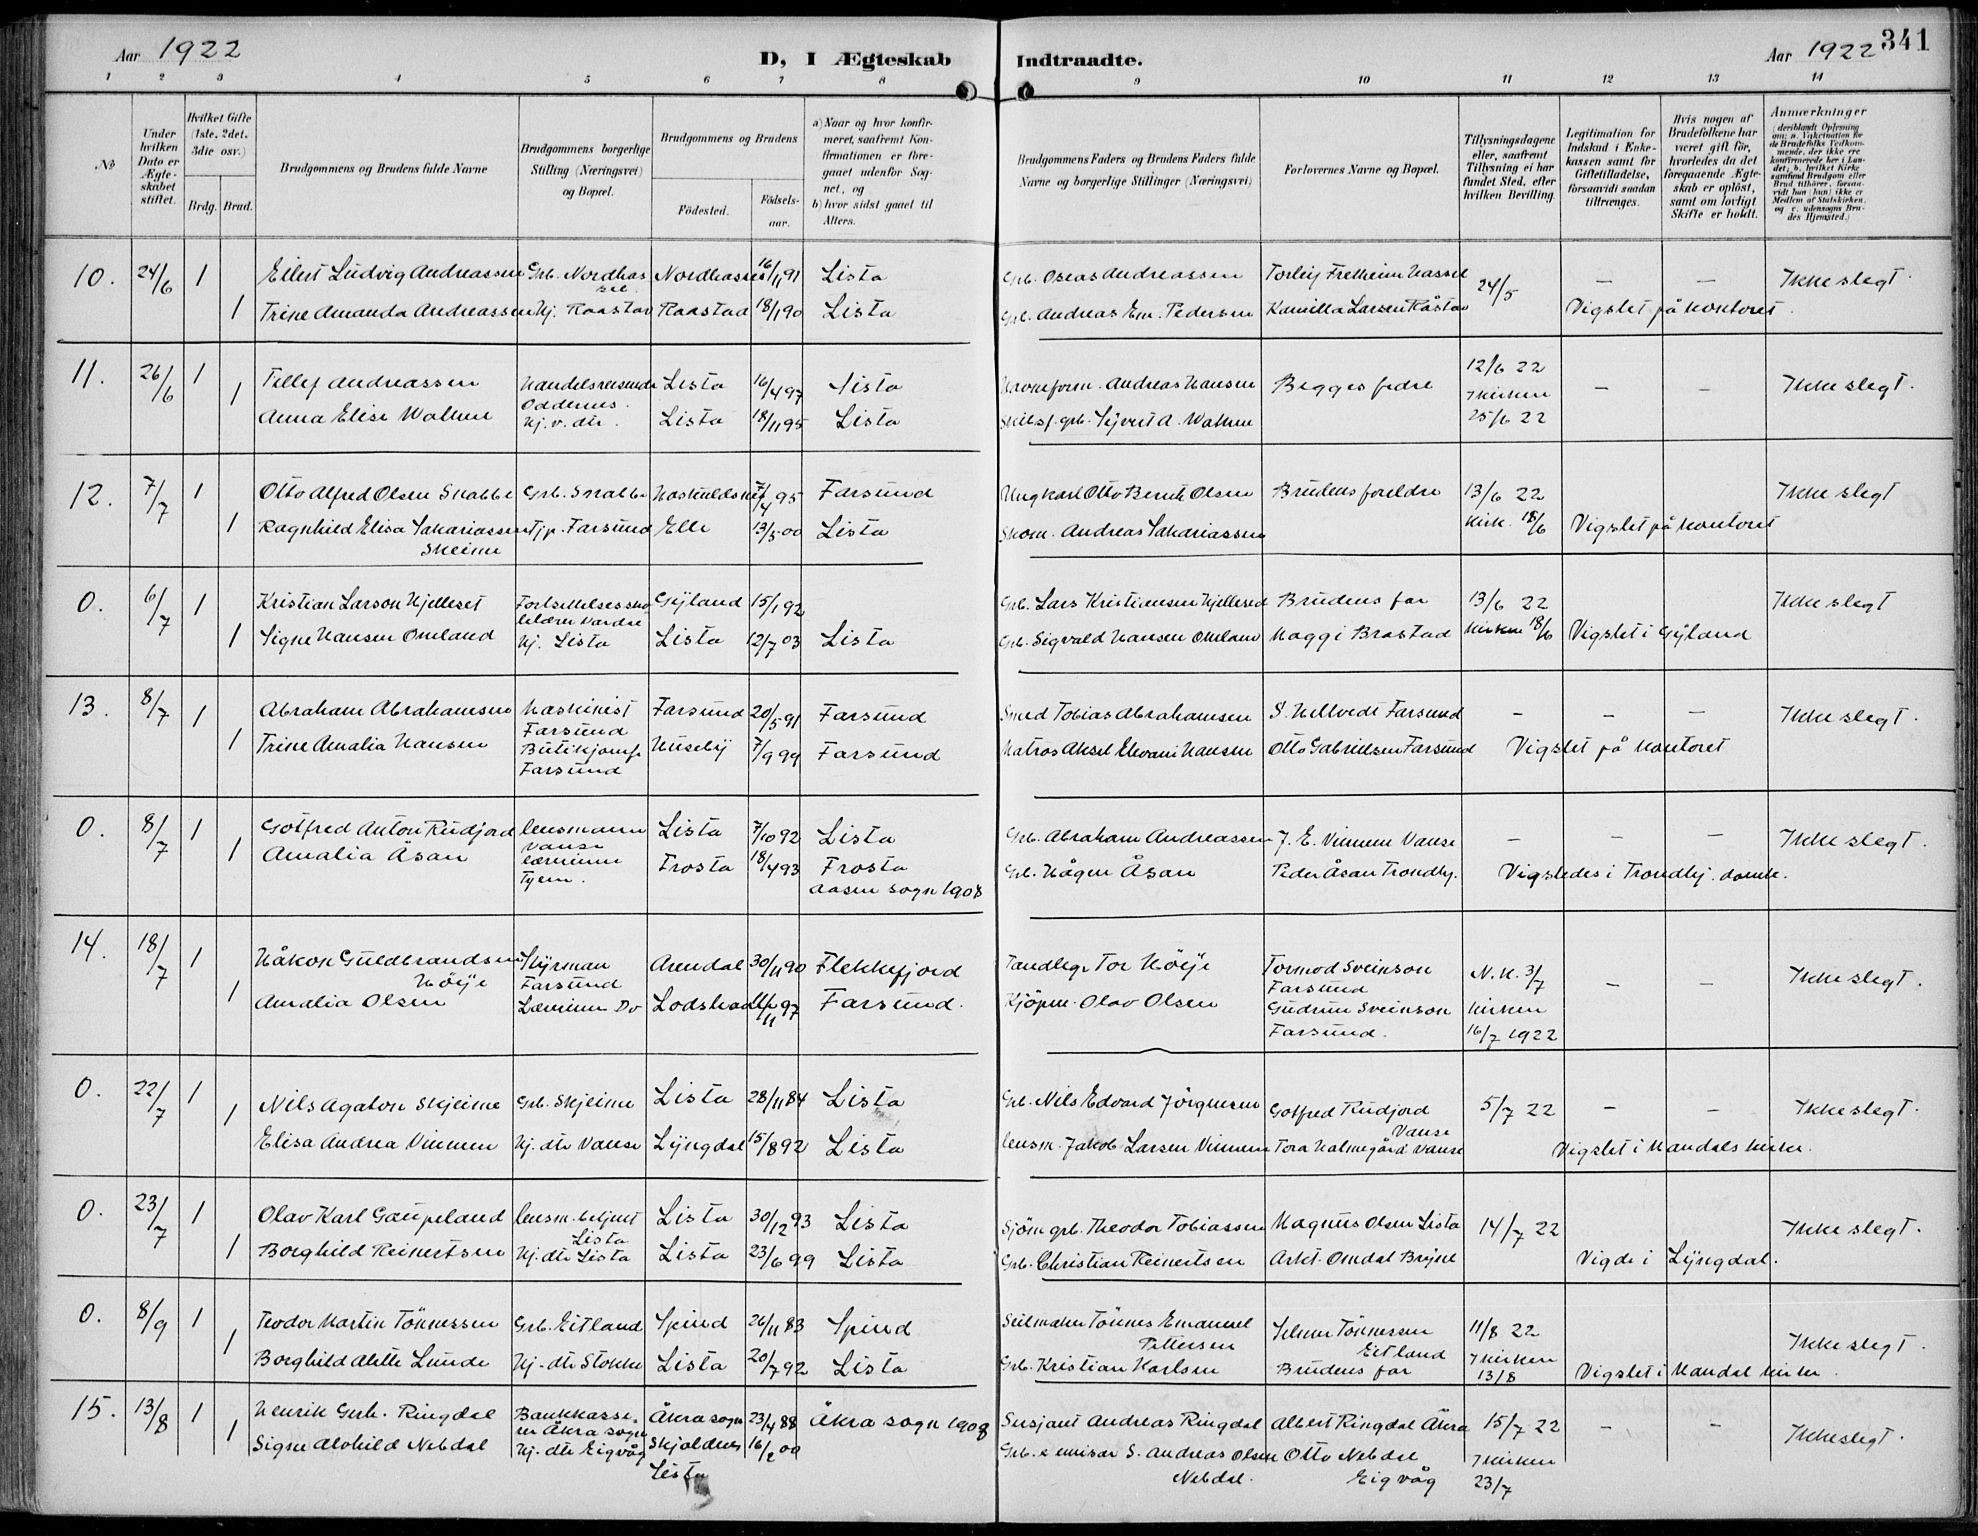 Aar 1922
D, I Ægteskab
Indtraadte.
Aar 1922
341
1 2 3 4 5 6 7 8 9 10 11 12 13 14
No
Under hvilken Dato er Ægteskabet stiftet.
Hvilket Gifte (1ste, 2det, 3die osv.)
Brdg. Brud.
Brudgommens og Brudens fulde Navne
Brudgommens borgerlige Stilling (Næringsvei) og Bopæl.
Brudgommens og Brudens
Fødested.
Fødselsaar.
a) Naar og hvor konfirmeret, saafremt Konfirmationen er foregaaet udenfor Sognet, og
b) hvor sidst gaaet til Alters.
Brudgommens Faders og Brudens Faders fulde Navne og borgerlige Stillinger (Næringsvei)
Forlovernes Navne og Bopæl.
Tillysningsdagene eller, saafremt Tillysning ei har fundet Sted, efter hvilken Bevilling.
Legitimation for Indskud i Enkekassen samt for Giftetilladelse, forsaavidt saadan tiltrænges.
Hvis nogen af Brudefolkene har været gift før, hvorledes da det foregaaende Ægteskab er opløst, samt om lovligt Skifte er holdt.
Anmærkninger
10. 24/6 1 Eilert Ludvig Andreassen Grb. Nordhassel Nordhassel 16/11 91 Lista Grb. Oseas Andreassen Torleif Fretheim Hassel 24/5 — — Ikke slegt.
1 Trine Amanda Andreassen Hj. Raastad Raastad 18/1 90 Lista Grb. Andreas Em. Pedersen Kamilla Larsen Råstad Vigslet på kontoret.
11. 26/6 1 Tellef Andreassen Handelsreisende Oddernes. Lista 16/4 97 Lista Andreas Hansen Begges fedre 12/6 22 — — Ikke slegt.
1 Anna Elise Walnum Hj. v. dtr. Lista 18/11 95 Lista Skibsf. grb. Syvert A. I kirken 25/6 22
12. 7/7 1 Otto Alfred Olsen Snabbe Grb. Snabbe 7/4 95 Farsund Ungkarl Otto Bernt Olsen Brudens foreldre 13/6 22 Ikke slegt
1 Ragnhild Elisa Sakariassen Skeime Tjp. Farsund Elle 13/5 00 Lista Skom. Andreas Sakariassen Kirk. 18/6 Vigslet på kontoret
0. 6/7 1 Kristian Larson Hjelleset Fortsettelsesskolelærer Gyland 15/1 92 Grb. Lars Kristiensen Hjelleset Brudens far 13/6 22 Ikke slegt
1 Signe Hansen Omland Hj. Lista Lista 12/7 03 Lista Grb. Sigvald Hansen Omland Maggi Brastad Kirken 18/6 Vigslet i Gyland
13. 8/7 1 Abraham Abrahamsen Maskinist Farsund Farsund 20/5 91 Farsund Smed Tobias Abrahamsen S. Helvedt Farsund — — — Ikke slegt.
1 Trine Amalia Hansen Butikjomf. Farsund Huseby 7/9 99 Farsund Matros Aksel Hansen Otto Gabrielsen Farsund Vigslet på kontoret
0. 8/7 1 Gotfred Anton Rudjord lensmann Vanse Lista 7/10 92 Lista Grb. Abraham Andreassen J. E. Vinnem Vanse — — — Ikke slegt.
1 Amalia Åsan lærerinne Frosta 18/4 93 Frosta Aasen sogn 1908 Grb. Hågen Åsan Peder Åsan Trondhj. Vigsledes i Trondhj. domk.
14. 18/7 1 Håkon Guldbrandsen Höije Styrman Farsund Arendal 30/11 90 Flekkefjord Tandlege Tor Höije Tormod Sveinson Farsund N.K. 3/7 — — Ikke slegt.
1 Amalia Olsen Lærerinne Do Lodshavn 11/11 97 Farsund. Kjöpm. Olav Olsen Gudrun Sveinson Farsund. Kirken 16/7 1922
0. 22/7 1 Nils Agaton Skjeime Grb. Skjeime Lista 28/11 84 Lista Grb. Nils Edvard Jörgensen Gotfred Rudjord Vanse 5/7 22 — — Ikke slegt.
1 Elisa Andrea Vinnem Hj. dtr Vanse Lyngdal 15/8 92 Lista lensm. Jakob Larsen Vinnem Tora Halmegård Vanse Vigslet i Mandals kirke.
0. 23/7 1 Olav Karl Gaupeland lensm. betjent Lista Lista 30/12 93 Lista Sjöm grb. Theodor Tobiassen Magnus Olsen Lista 14/7 22 Ikke slegt.
1 Borghild Reinertsen Hj. dtr Lista Lista 23/6 99 Lista Grb. Christian Reinertsen Arkt. Omdal Bryne Vigde i Lyngdal.
0. 8/9 1 Teodor Martin Tönnessen Grb. Eitland Spind 26/11 83 Spind Seilmaker Tönnes Emanuel Pettersen Tönnessen Eitland 11/8 22 Ikke slegt.
1 Borghild Alette Lunde Hj. dtr Stokke Lista 20/7 92 Lista Grb. Kristian Karlsen Brudens far I kirken 13/8 Vigslet i Mandal kirke
15. 13/8 1 Henrik Gerh. Ringdal Bankkasserer Åkra sogn Åkra sogn 23/4 88 Åkra sogn 1908 Sersjant Andreas Ringdal Albert Ringdal Åkra 15/7 22 — — Ikke slegt.
1 Signe Alvhild Nebdal Hj. dtr Eigvåg Skjoldnes Lista 16/2 00 Grb. & emisær S. Andreas Olsen Nebdal. Otto Nebdal Eigvåg I kirken 23/7